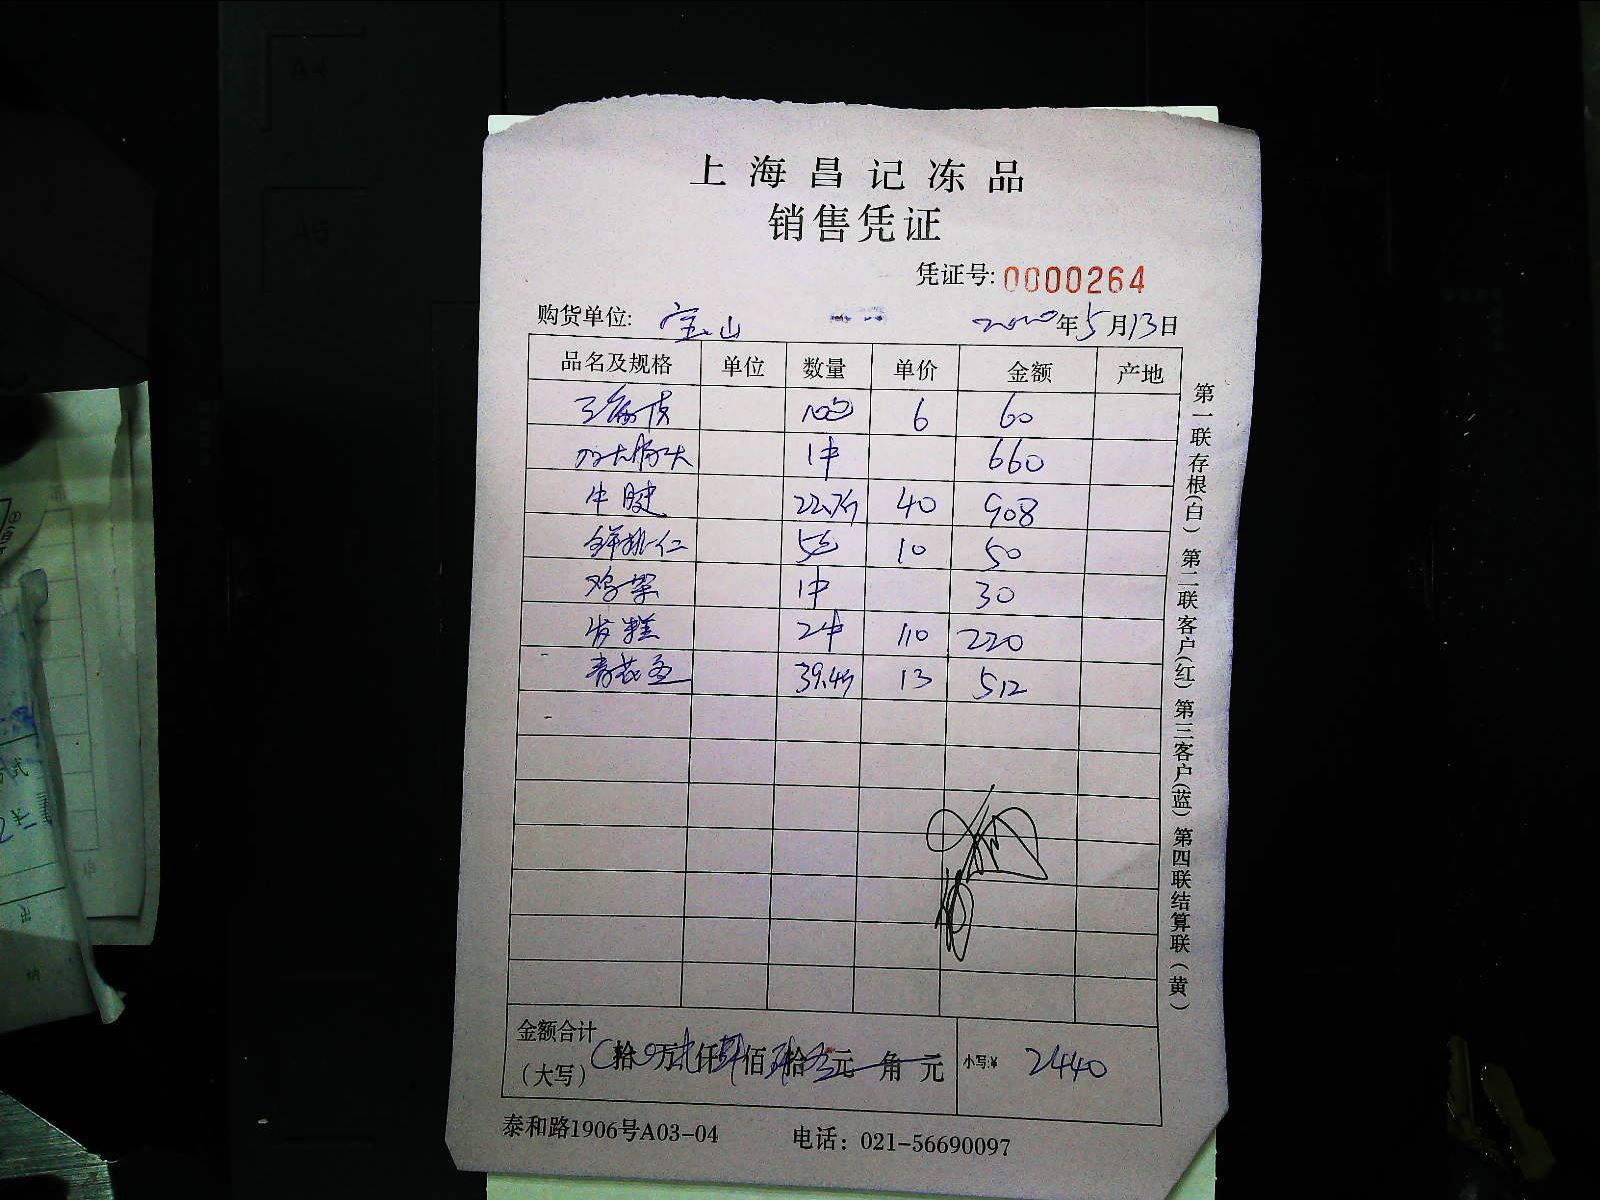 上海昌记冻品
销售凭证
凭证号: 0000264
购货单位: 宝山 2020年5月13日
品名及规格 单位 数量 单价 金额 产地
10包 6 60
1件 660
牛腱 22.7斤 40 908
鲜桃仁 5包 10 50
1件 30
发糕 2件 110 220
39.4斤 13 512
金额合计
(大写) 拾 万 仟 佰 拾 元 角 元 小写:¥ 2440
泰和路1906号A03-04 电话: 021-56690097
第一联存根(白) 第二联客户(红) 第三客户(蓝) 第四联结算联(黄)